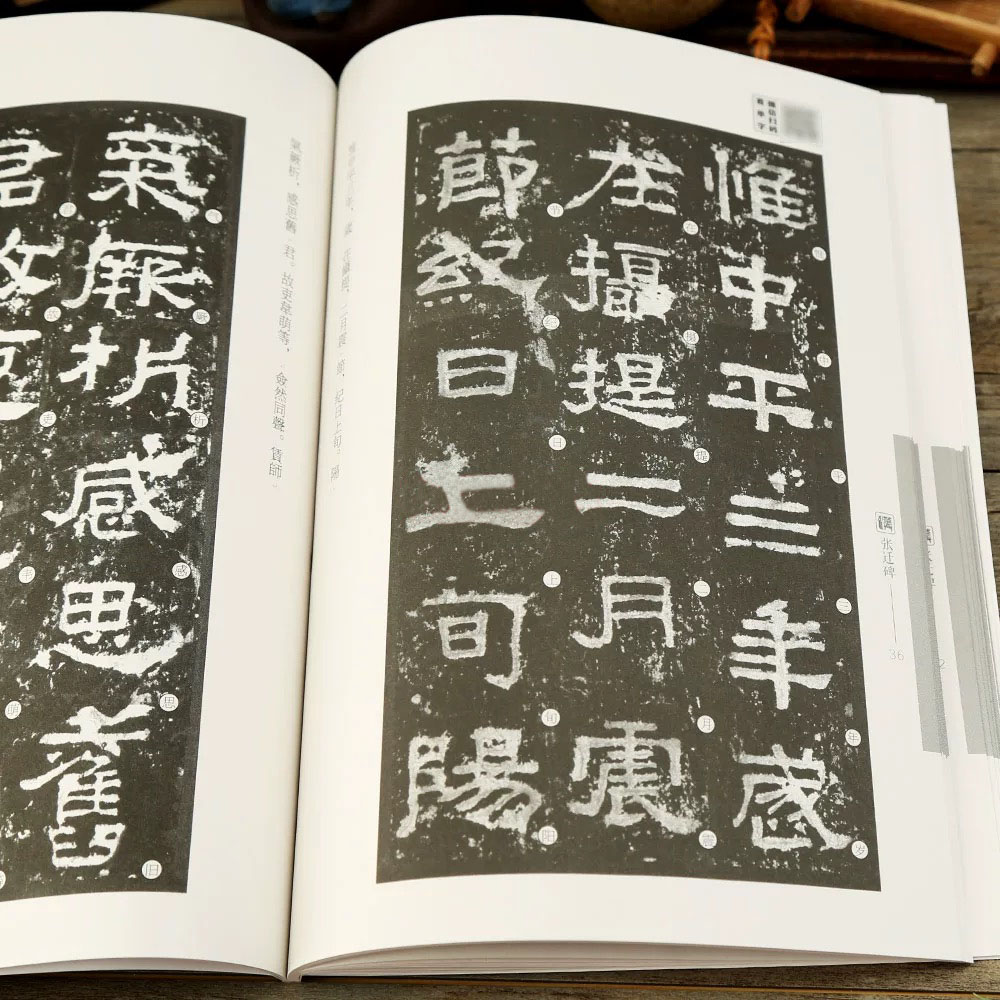 微信扫码
看单字
張迁碑
36
惟中平三年歲
在攝提二月震
節紀日上旬陽
惟中平三年，歲 在攝提，二月震 節，紀日上旬。陽
氣厥析感思舊
君故吏
氣厥析，感思舊 君。故吏韋萌等，僉然同聲。賃師